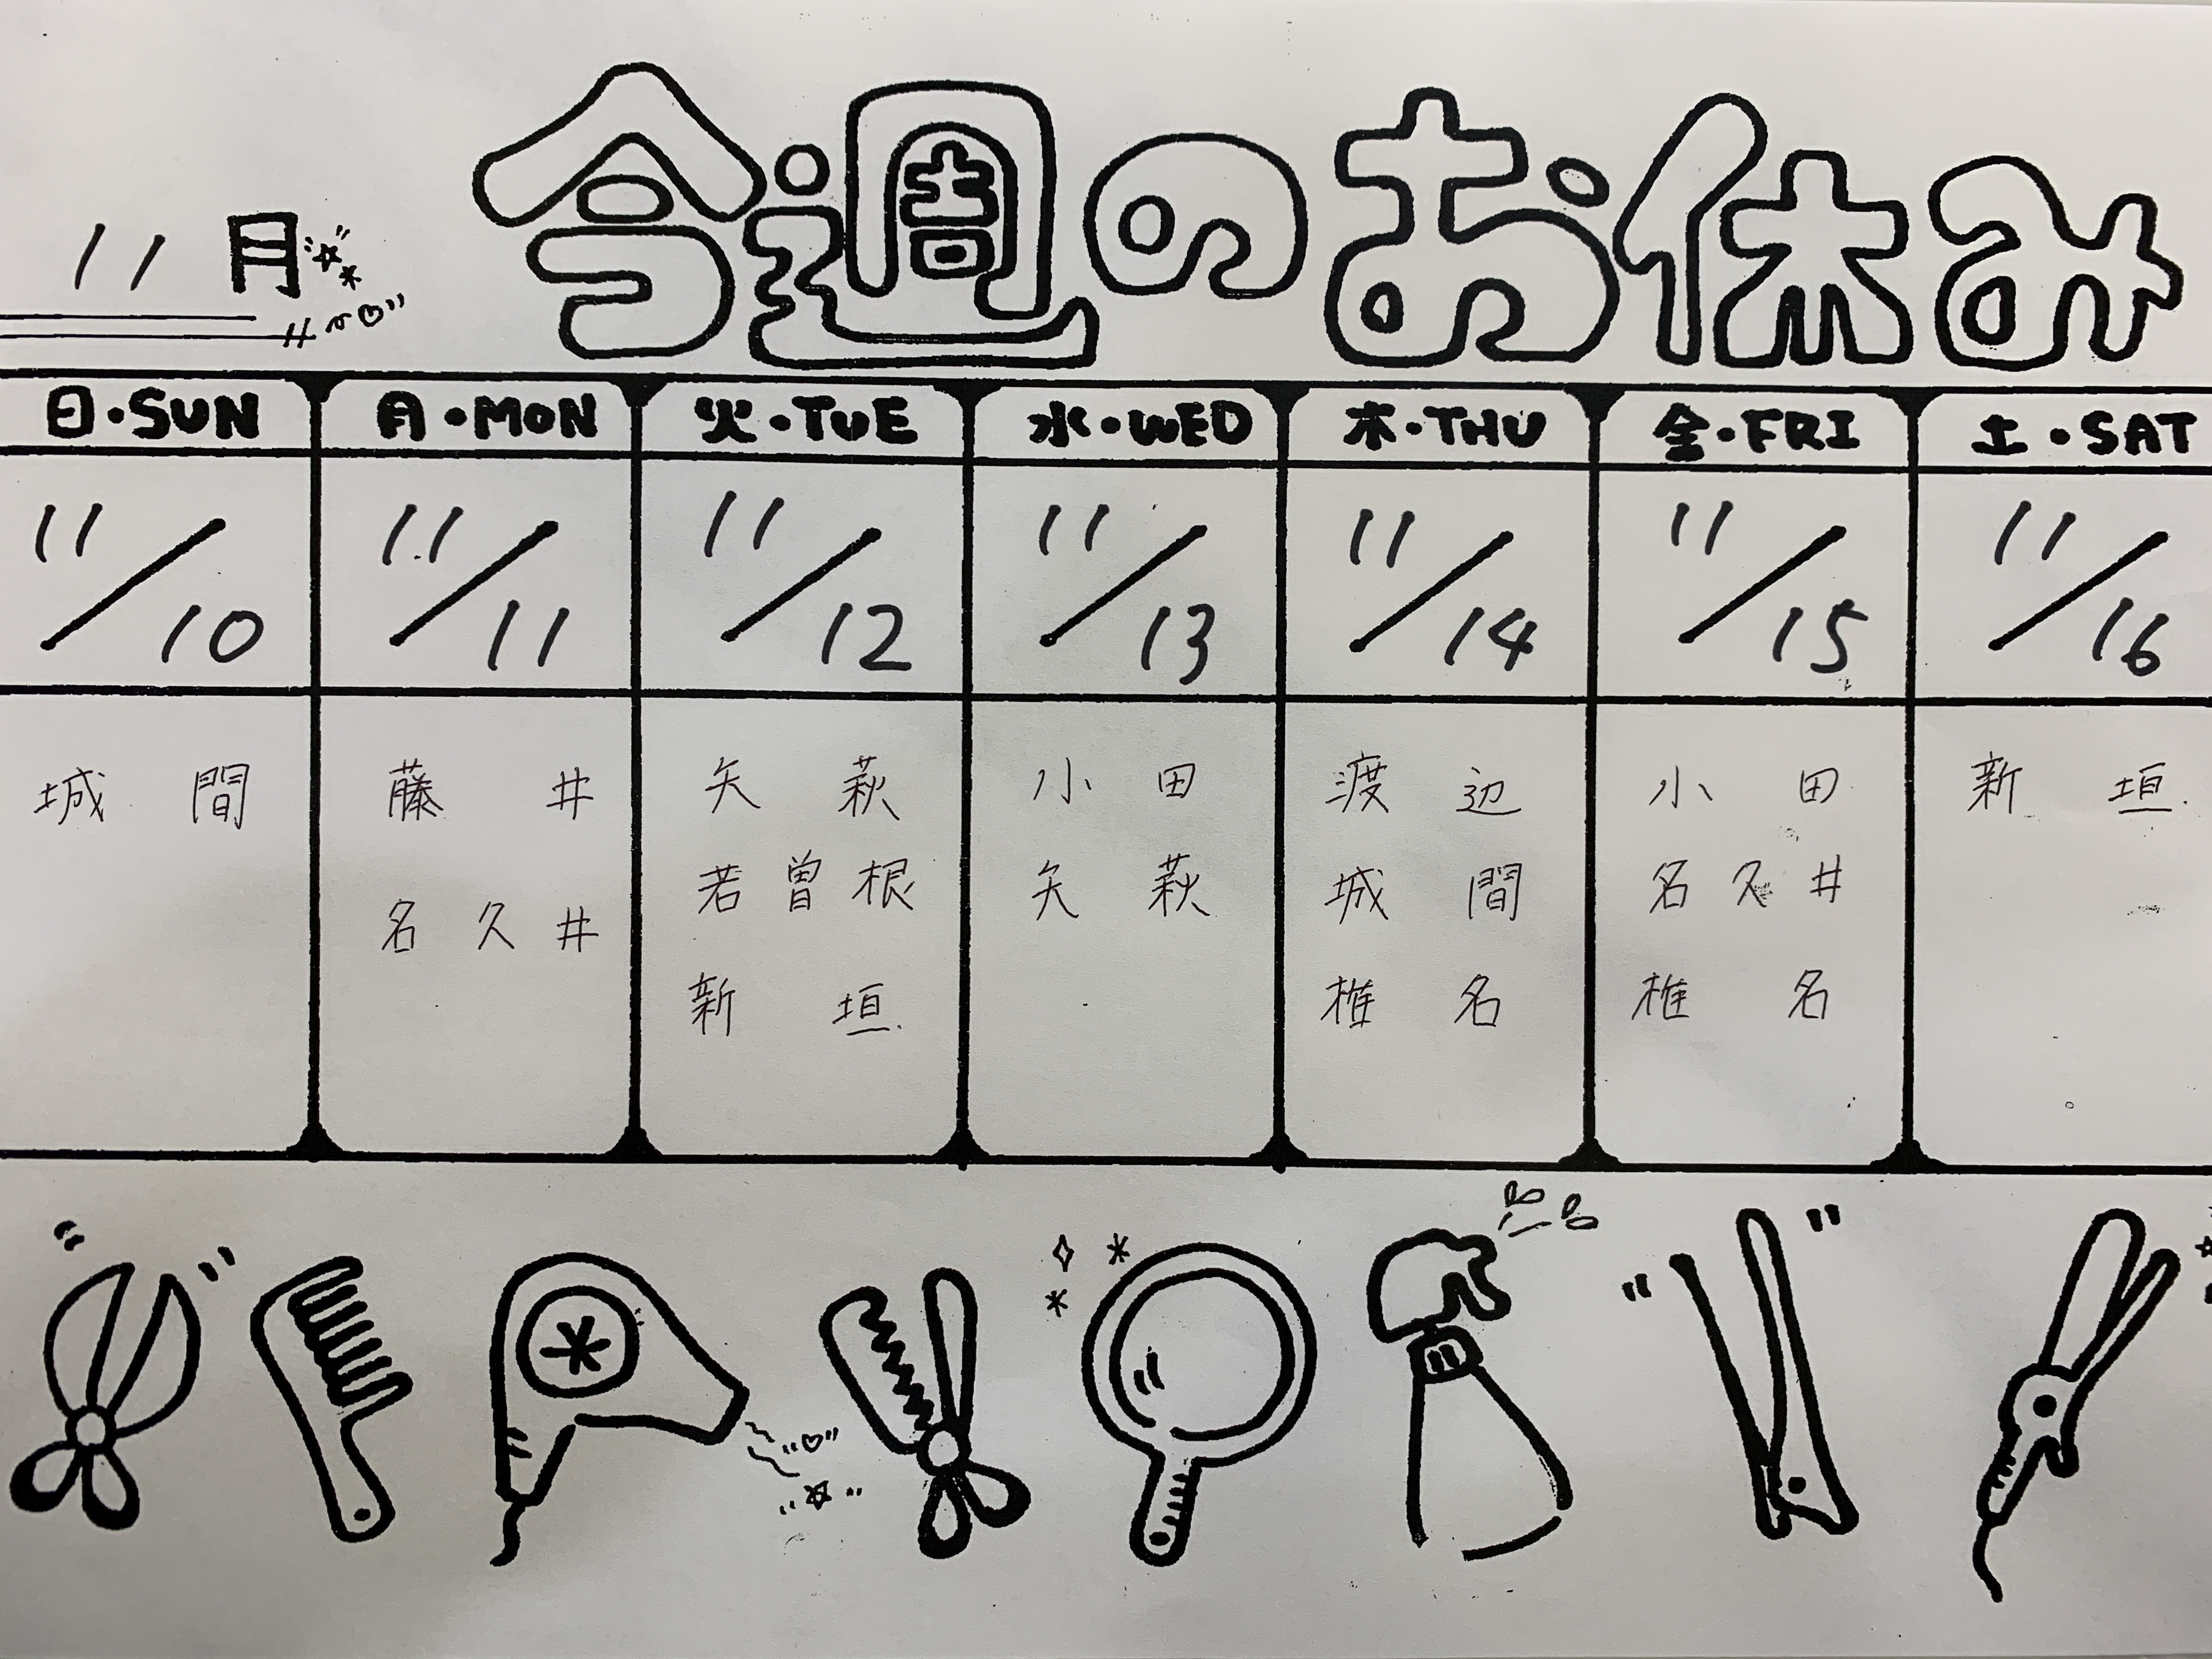 11月
今週のお休み
日・SUN 月・MON 火・TUE 水・WED 木・THU 金・FRI 土・SAT
11/10 11/11 11/12 11/13 11/14 11/15 11/16
城間 藤井 矢萩 小田 渡辺 小田 新垣
名久井 若曽根 矢萩 城間 名久井
新垣 椎名 椎名